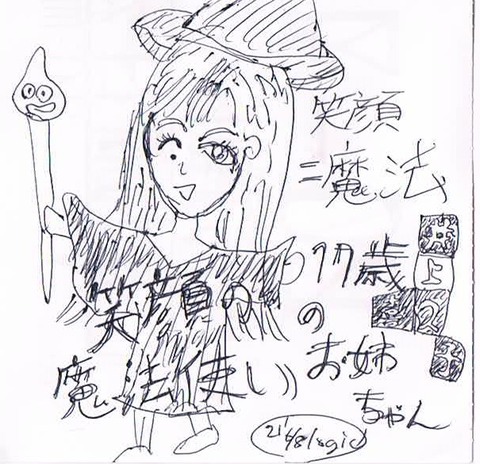 笑顔
=魔法
17歳
の
お姉
ちゃん
笑顔の
魔法使い
上